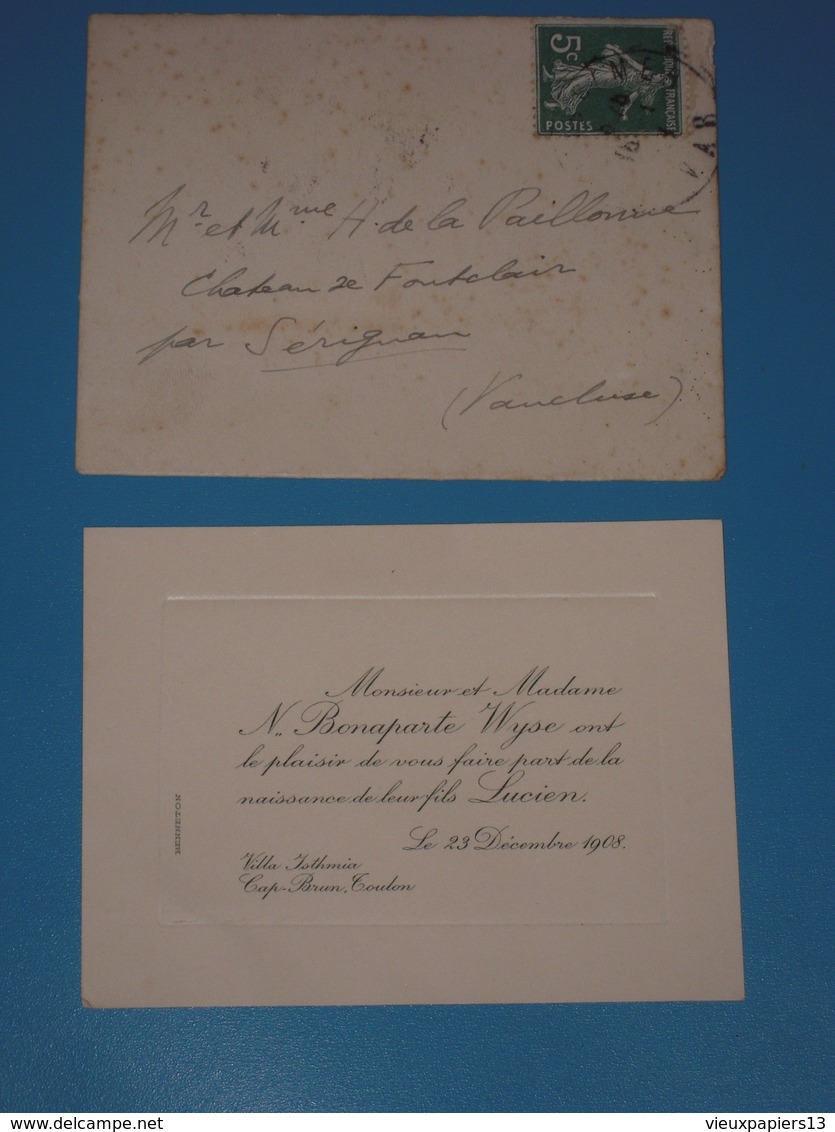 5c
REPUBLIQUE FRANÇAISE
POSTES
VAR
Mr. et Mme H. de la Paillonne
Chateau de Fontclair
par Sérignan
(Vaucluse)
Monsieur et Madame
N. Bonaparte Wyse ont
le plaisir de vous faire part de la
naissance de leur fils Lucien.
Le 23 Décembre 1908.
Villa Isthmia
Cap-Brun, Toulon
BENNETON
www.delcampe.net
vieuxpapiers13